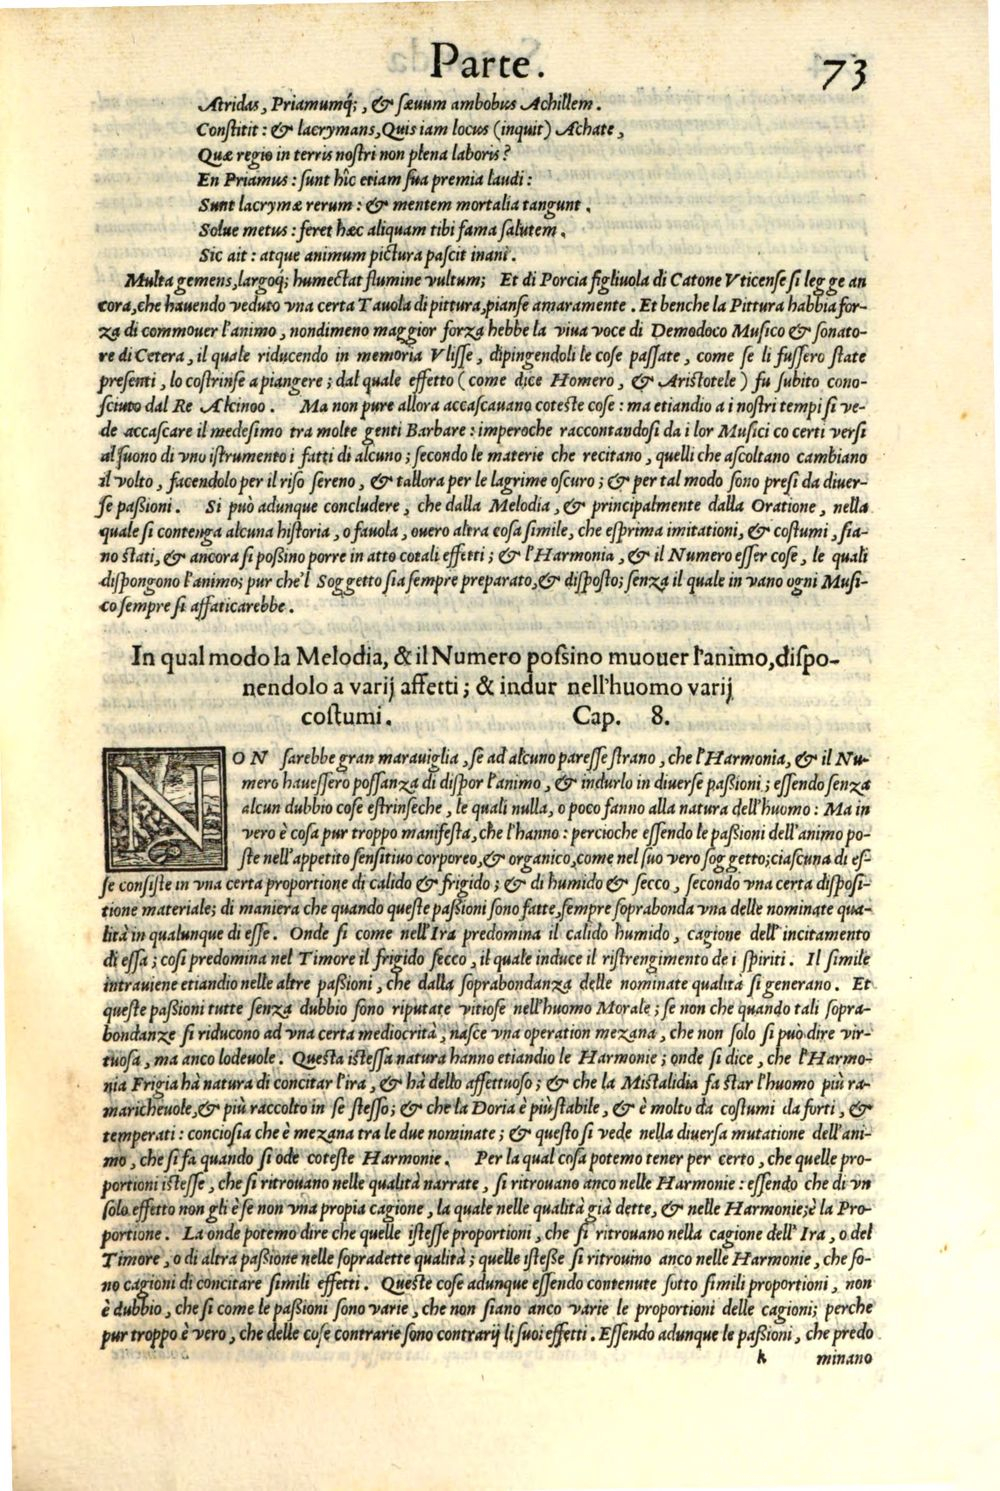 Parte. 73
Atridas, Priamumq́;, & sæuum ambobus Achillem.
Constitit: & lacrymans, Quis iam locus (inquit) Achate,
Quæ regio in terris nostri non plena laboris?
En Priamus: sunt hîc etiam sua premia laudi:
Sunt lacrymæ rerum: & mentem mortalia tangunt.
Solue metus: feret hæc aliquam tibi fama salutem.
Sic ait: atque animum pictura pascit inani.
Multa gemens, largoq́; humectat flumine vultum; Et di Porcia figliuola di Catone Vticense si legge an
cora, che hauendo veduto vna certa Tauola di pittura, pianse amaramente. Et benche la Pittura habbia for-
za di commouer l'animo, nondimeno maggior forza hebbe la viua voce di Demodoco Musico & sonato-
re di Cetera, il quale riducendo in memoria Vlisse, dipingendoli le cose passate, come se li fussero state
presenti, lo costrinse a piangere; dal quale effetto (come dice Homero, & Aristotele) fu subito cono-
sciuto dal Re Alcinoo. Ma non pure allora accascauano coteste cose: ma etiandio a i nostri tempi si ve-
de accascare il medesimo tra molte genti Barbare: imperoche raccontandosi da i lor Musici co certi versi
al suono di vno istrumento i fatti di alcuno; secondo le materie che recitano, quelli che ascoltano cambiano
il volto, facendolo per il riso sereno, & tallora per le lagrime oscuro; & per tal modo sono presi da diuer-
se passioni. Si può adunque concludere, che dalla Melodia, & principalmente dalla Oratione, nella
quale si contenga alcuna historia, o fauola, ouero altra cosa simile, che esprima imitationi, & costumi, sia-
no stati, & ancora si possino porre in atto cotali effetti; & l'Harmonia, & il Numero esser cose, le quali
dispongono l'animo; pur che'l Soggetto sia sempre preparato, & disposto; senza il quale in vano ogni Musi-
co sempre si affaticarebbe.
In qual modo la Melodia, & il Numero possino muouer l'animo, dispo-
nendolo a varij affetti; & indur nell'huomo varij
costumi. Cap. 8.
NON sarebbe gran marauiglia, se ad alcuno paresse strano, che l'Harmonia, & il Nu-
mero hauessero possanza di dispor l'animo, & indurlo in diuerse passioni; essendo senza
alcun dubbio cose estrinseche, le quali nulla, o poco fanno alla natura dell'huomo: Ma in
vero è cosa pur troppo manifesta, che l'hanno: percioche essendo le passioni dell'animo po-
ste nell'appetito sensitiuo corporeo, & organico, come nel suo vero soggetto; ciascuna di es-
se consiste in vna certa proportione di calido & frigido; & di humido & secco, secondo vna certa disposi-
tione materiale; di maniera che quando queste passioni sono fatte, sempre soprabonda vna delle nominate qua-
lità in qualunque di esse. Onde si come nell'Ira predomina il calido humido, cagione dell'incitamento
di essa; cosi predomina nel Timore il frigido secco, il quale induce il ristrengimento de i spiriti. Il simile
intrauiene etiandio nelle altre passioni, che dalla soprabondanza delle nominate qualità si generano. Et
queste passioni tutte senza dubbio sono riputate vitiose nell'huomo Morale; se non che quando tali sopra-
bondanze si riducono ad vna certa mediocrità, nasce vna operation mezana, che non solo si può dire vir-
tuosa, ma anco lodeuole. Questa istessa natura hanno etiandio le Harmonie; onde si dice, che l'Harmo-
nia Frigia hà natura di concitar l'ira, & hà dello affettuoso; & che la Mistalidia fa star l'huomo più ra-
maricheuole, & più raccolto in se stesso; & che la Doria è più stabile, & è molto da costumi da forti, &
temperati: conciosia che è mezana tra le due nominate; & questo si vede nella diuersa mutatione dell'ani-
mo, che si fa quando si ode coteste Harmonie. Per la qual cosa potemo tener per certo, che quelle pro-
portioni istesse, che si ritrouano nelle qualità narrate, si ritrouano anco nelle Harmonie: essendo che di vn
solo effetto non gli è se non vna propia cagione, la quale nelle qualità già dette, & nelle Harmonie; è la Pro-
portione. La onde potemo dire che quelle istesse proportioni, che si ritrouano nella cagione dell'Ira, o del
Timore, o di altra passione nelle sopradette qualità; quelle istesse si ritrouino anco nelle Harmonie, che so-
no cagioni di concitare simili effetti. Queste cose adunque essendo contenute sotto simili proportioni, non
è dubbio, che si come le passioni sono varie, che non siano anco varie le proportioni delle cagioni; perche
pur troppo è vero, che delle cose contrarie sono contrarij li suoi effetti. Essendo adunque le passioni, che predo
k minano